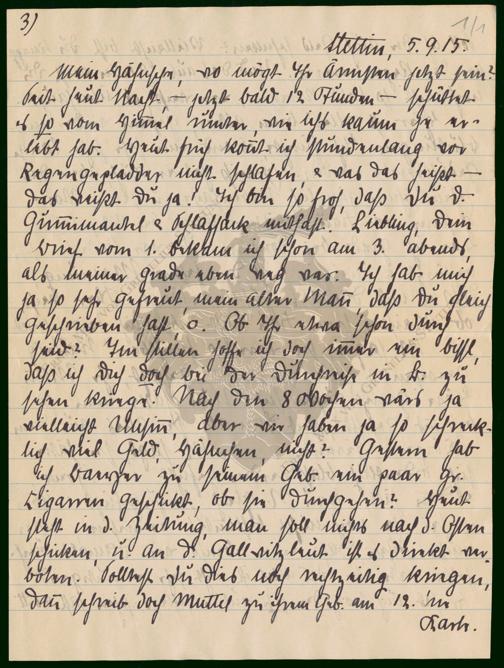 3)
1/1
Stettin, 5.9.15.
Mein Hähnchen, wo mögt Ihr Ärmsten jetzt sein?
Seit heut Nacht – jetzt bald 12 Stunden – schüttet
es so vom Himmel runter, wie ichs kaum je er-
lebt hab. Heut früh konnt ich stundenlang vor
Regengepladder nicht schlafen, & was das heißt –
das weißt Du ja! Ich bin so froh, daß Du d.
Gummimantel & Schlafsack mithast. Liebling, Dein
Brief vom 1. bekam ich schon am 3. abends,
als meiner grade eben weg war. Ich hab mich
ja so sehr gefreut, mein alter Mann, daß Du gleich
geschrieben hast, o. Ob Ihr etwa schon durch
seid? Im stillen hoffe ich doch immer ein bissl,
daß ich Dich doch bei der Durchreise in B. zu
sehen kriege. Nach den 8 Wochen wärs ja
vielleicht Unsinn, aber wir haben ja so schreck-
lich viel Geld, Hähnchen, nicht? Gestern hab
ich zu seinem Geb. ein paar gr.
Cigarren geschickt, ob sie durchgehen? Heut
steht in d. Zeitung, man soll nichts nach d. Osten
schicken, u. an d. Gallwitzleut ist es direkt ver-
boten. Solltest Du dies noch rechtzeitig kriegen,
dann schreib doch Muttel zu ihrem Geb. am 12. 'ne
Karte.